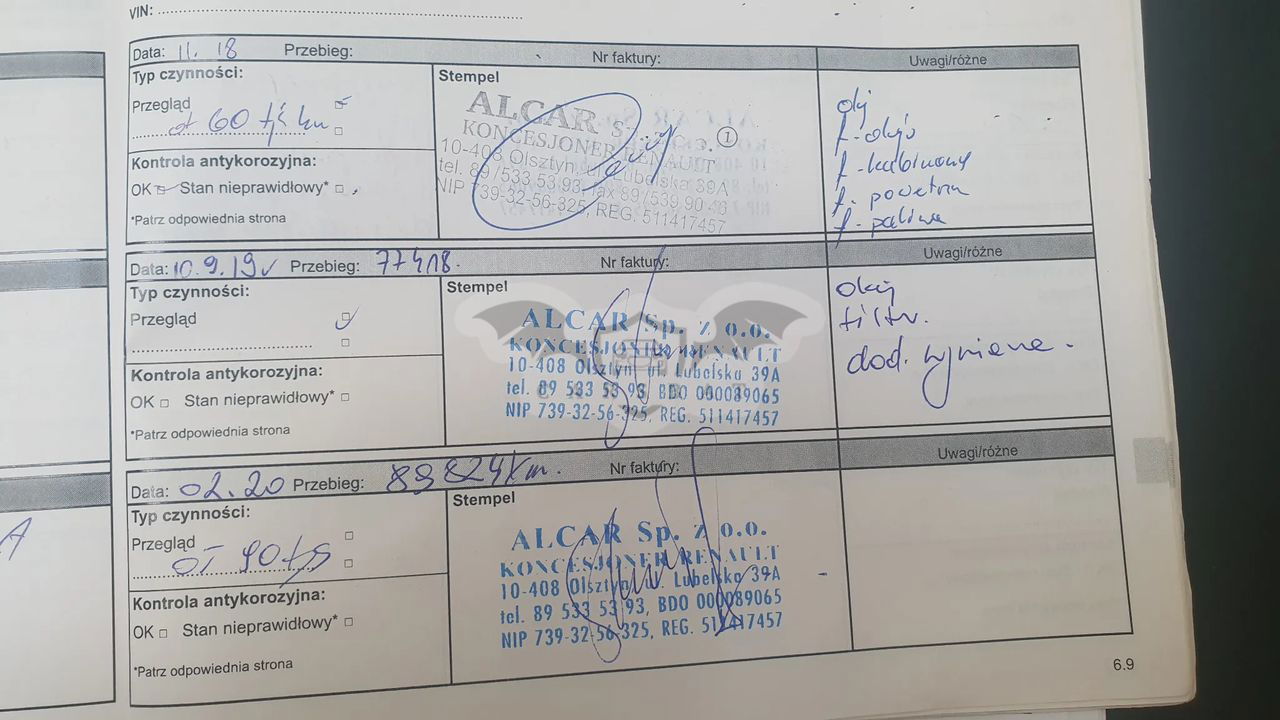 VIN:
Data: 11. 18 Przebieg: Nr faktury: Uwagi/różne
Typ czynności:
Stempel
Przegląd
ot 60 tyś km
Kontrola antykorozyjna:
OK Stan nieprawidłowy*
*Patrz odpowiednia strona
ALCAR S
KONCESJONER RENAULT
10-408 Olsztyn, ul. Lubelska 39A
tel. 89/533 53 93, fax 89/539 90
NIP 739-32-56-325, REG. 511417457
1
olej
f. oleju
f. kabinowy
f. powietrza
f. paliwa
Data: 10.9.19 Przebieg: 77418. Nr faktury: Uwagi/różne
Typ czynności:
Stempel
Przegląd
Kontrola antykorozyjna:
OK Stan nieprawidłowy*
*Patrz odpowiednia strona
ALCAR Sp. z o.o.
KONCESJONER RENAULT
10-408 Olsztyn, ul. Lubelska 39A
tel. 89 533 53 93, BDO 000089065
NIP 739-32-56-325, REG. 511417457
olej
filtr.
dod. wymiana.
Data: 02.20 Przebieg: 89824km. Nr faktury: Uwagi/różne
Typ czynności:
Stempel
Przegląd
OT 90 tyś
Kontrola antykorozyjna:
OK Stan nieprawidłowy*
*Patrz odpowiednia strona
ALCAR Sp. z o.o.
KONCESJONER RENAULT
10-408 Olsztyn, ul. Lubelska 39A
tel. 89 533 53 93, BDO 000089065
NIP 739-32-56-325, REG. 511417457
A
6.9